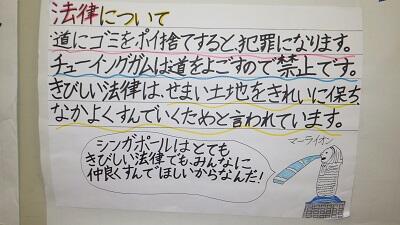 法律について
道にゴミをポイ捨てすると、犯罪になります。
チューイングガムは道をよごすので禁止です。
きびしい法律は、せまい土地をきれいに保ち、
なかよくすんでいくためと言われています。
マーライオン
シンガポールはとても
きびしい法律でも、みんなに
仲良くすんでほしいからなんだ!